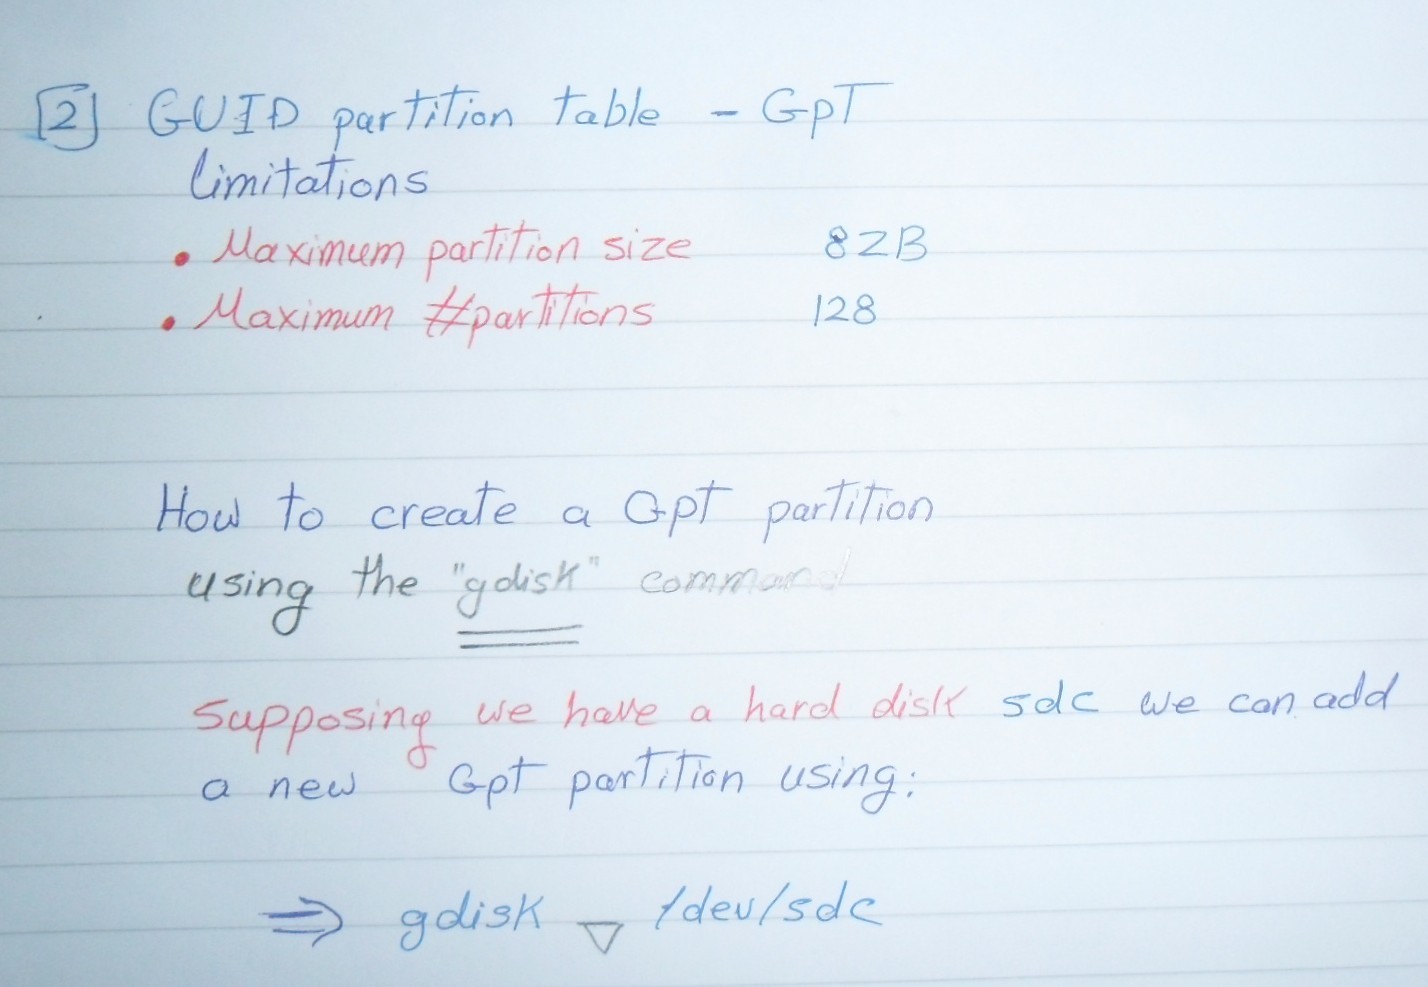 [2] GUID partition table - GpT
limitations
• Maximum partition size 8ZB
• Maximum #partitions 128
How to create a Gpt partition
using the "gdisk" command
Supposing we have a hard disk sdc we can add
a new Gpt partition using:
⇒ gdisk ▽ /dev/sdc